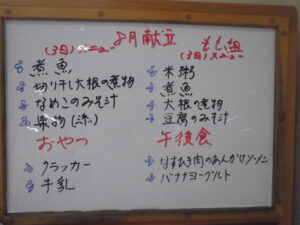 8月献立
(3日)メニュー
煮魚
切り干し大根の煮物
なめこのみそ汁
果物
おやつ
クラッカー
牛乳
もも組
(3日)メニュー
米粥
煮魚
大根の煮物
豆腐のみそ汁
午後食
なすひき肉のあんかけソーメン
バナナヨーグルト